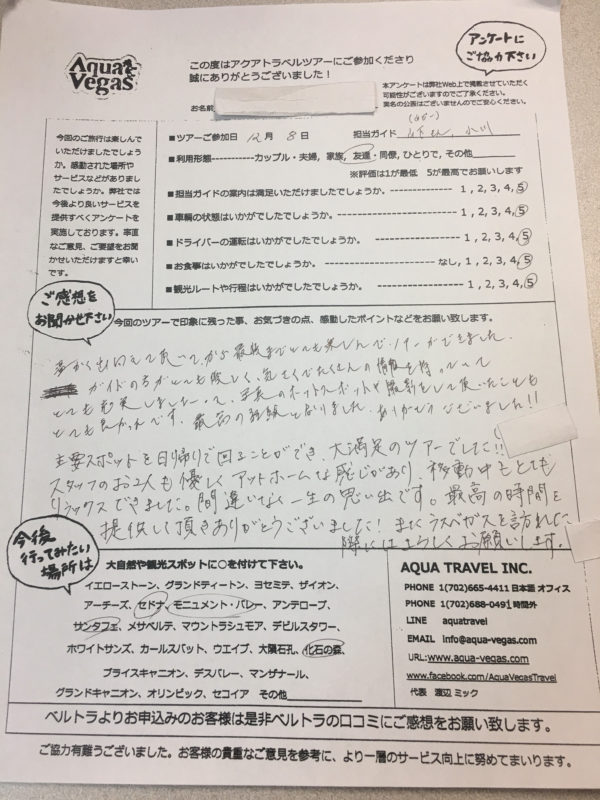 Aqua Vegas
この度はアクアトラベルツアーにご参加くださり
誠にありがとうございました！
アンケートにご協力下さい
本アンケートは弊社Web上で掲載させていただく
可能性がございますのでご了承ください。
実名の公表はございませんのでご安心ください。
お名前
今回のご旅行は楽しんで
いただけましたでしょう
か。感動された場所や
サービスなどがありまし
たでしょうか。弊社では
今後より良いサービスを
提供すべくアンケートを
実施しております。率直
なご意見、ご要望をお聞
かせいただけますと幸い
です。
■ツアーご参加日 12月 8日 担当ガイド 小川
■利用形態-----------カップル・夫婦, 家族, 友達・同僚, ひとりで, その他
※評価は1が最低 5が最高でお願いします
■担当ガイドの案内は満足いただけましたでしょうか。------------------ 1, 2, 3, 4, 5
■車輌の状態はいかがでしたでしょうか。------------------ 1, 2, 3, 4, 5
■ドライバーの運転はいかがでしたでしょうか。------------------ 1, 2, 3, 4, 5
■お食事はいかがでしたでしょうか。------------------ なし, 1, 2, 3, 4, 5
■観光ルートや行程はいかがでしたでしょうか。------------------ 1, 2, 3, 4, 5
ご感想をお聞かせ下さい
今回のツアーで印象に残った事、お気づきの点、感動したポイントなどをお願い致します。
最後までとても楽しんで
ガイドの方がとても優しく、気さくでたくさんの情報を持っていて
とても充実しました
とても良かったです。最高の
ありがとうございました!!
主要スポットを日帰りで回ることができ、大満足のツアーでした!!
スタッフのお2人も優しくアットホームな感じがあり、移動中もとても
リラックスできました。間違いなく一生の思い出です。最高の時間を
提供して頂きありがとうございました！またラスベガスを訪れた
際にはよろしくお願いします。
今後行ってみたい場所は
大自然や観光スポットに○を付けて下さい。
イエローストーン、グランドティートン、ヨセミテ、ザイオン、
アーチーズ、セドナ、モニュメント・バレー、アンテロープ、
サンタフェ、メサベルテ、マウントラシュモア、デビルスタワー、
ホワイトサンズ、カールスバット、ウエイブ、大隕石孔、化石の森、
ブライスキャニオン、デスバレー、マンザナール、
グランドキャニオン、オリンピック、セコイア その他
AQUA TRAVEL INC.
PHONE 1(702)665-4411 日本語 オフィス
PHONE 1(702)688-0491 時間外
LINE aquatravel
EMAIL info@aqua-vegas.com
URL:www.aqua-vegas.com
www.facebook.com/AquaVegasTravel
代表 渡辺 ミック
ベルトラよりお申込みのお客様は是非ベルトラの口コミにご感想をお願い致します。
ご協力有難うございました。お客様の貴重なご意見を参考に、より一層のサービス向上に努めてまいります。